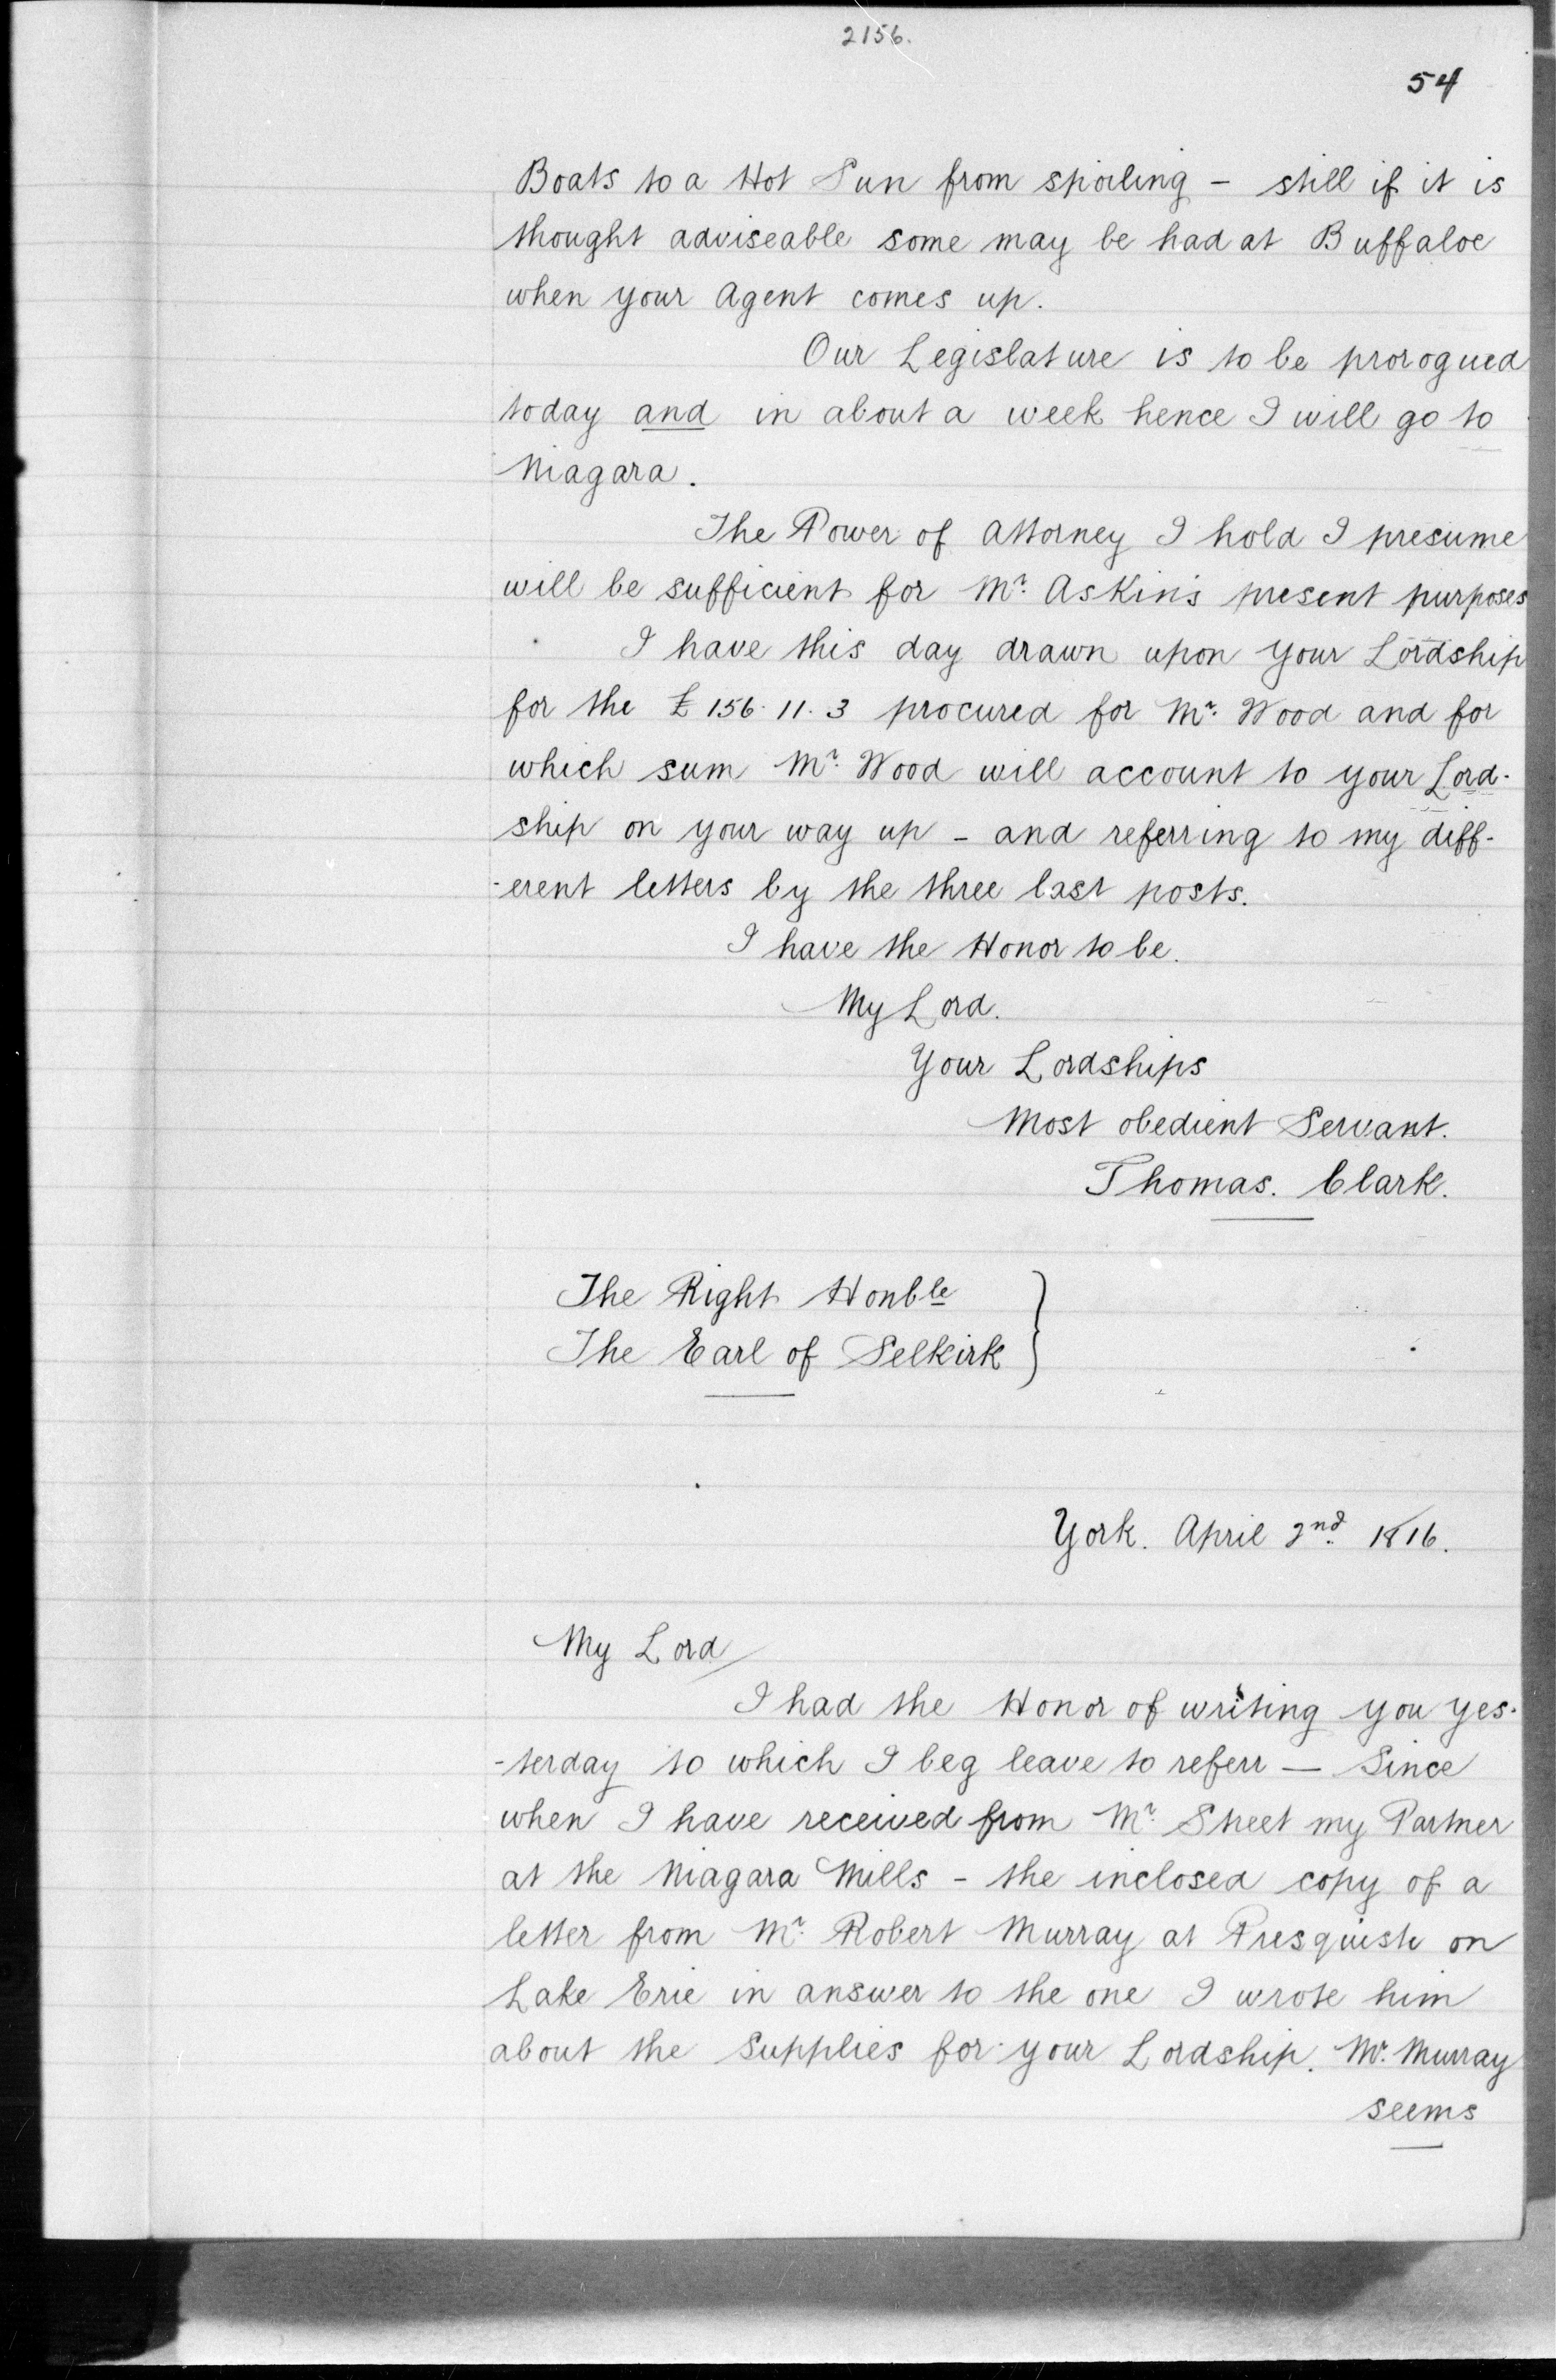 2156.
54
Boats to a Hot Sun from spoiling - still if it is
thought adviseable some may be had at Buffaloe
when your Agent comes up.
Our Legislature is to be prorogued
today and in about a week hence I will go to
Niagara.
The Power of Attorney I hold I presume
will be sufficient for Mr. Askin's present purposes
I have this day drawn upon your Lordship
for the £156. 11. 3 procured for Mr. Wood and for
which sum Mr. Wood will account to your Lord-
ship on your way up - and referring to my diff-
-erent letters by the three last posts.
I have the Honor to be.
My Lord.
Your Lordships
Most obedient Servant.
Thomas. Clark.
The Right Honble
The Earl of Selkirk }
York. April 2nd. 1816.
My Lord/
I had the Honor of writing you yes-
-terday to which I beg leave to referr — Since
when I have received from Mr. Street my Partner
at the Niagara Mills - the inclosed copy of a
letter from Mr. Robert Murray at Presquisle on
Lake Erie in answer to the one I wrote him
about the Supplies for your Lordship. Mr. Murray
seems